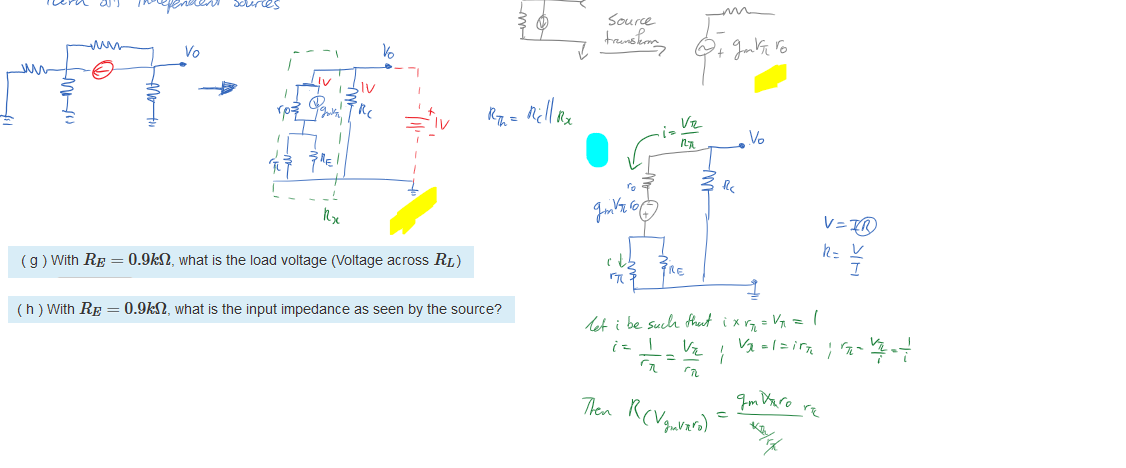 Turn off independent sources
Source
transform
gmVπ ro
Vo
Vo
1V
1V
rο
gmVπ
RC
+
1V
-
rπ
RE
Rx
RTh = RC || Rx
i = Vπ
rπ
Vo
ro
RC
gmVπ ro
-
+
i
rπ
RE
V = IR
R = V
I
( g ) With RE = 0.9kΩ, what is the load voltage (Voltage across RL)
( h ) With RE = 0.9kΩ, what is the input impedance as seen by the source?
let i be such that i x rπ = Vπ = 1
i = 1/rπ = Vπ/rπ ; Vπ = 1 = i rπ ; rπ = Vπ/i = 1/i
Then R(VgmVπro) = gmVπro rπ
Vπ/rπ